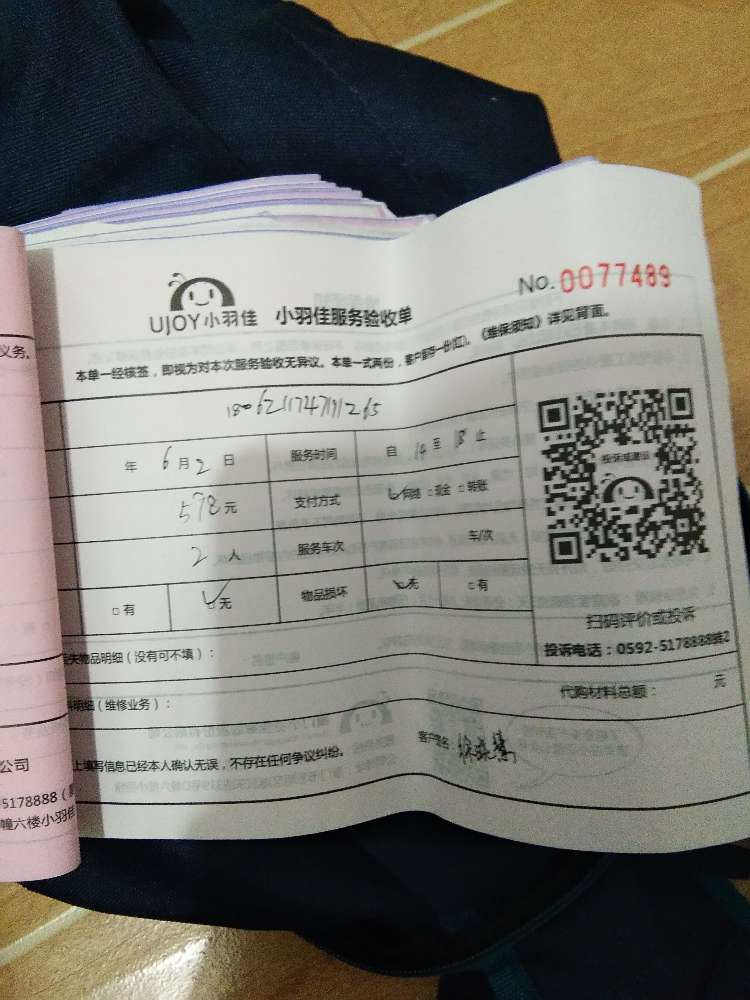 No. 0077489
UJOY小羽佳 小羽佳服务验收单
本单一经核签，即视为对本次服务验收无异议。本单一式两份，客户留存一份(红)。《维保须知》详见背面。
义务。
年 6 月 2 日 服务时间 自 14 至 18 止
578 元 支付方式 网络 □现金 □转账
2 人 服务车次 车/次
□有 无 物品损坏 无 □有
投诉或建议
扫码评价或投诉
投诉电话：0592-5178888转2
失物品明细（没有可不填）：
明细（维修业务）： 代购材料总额： 元
上填写信息已经本人确认无误，不存在任何争议纠纷。 客户签名：
公司
5178888
幢六楼小羽佳